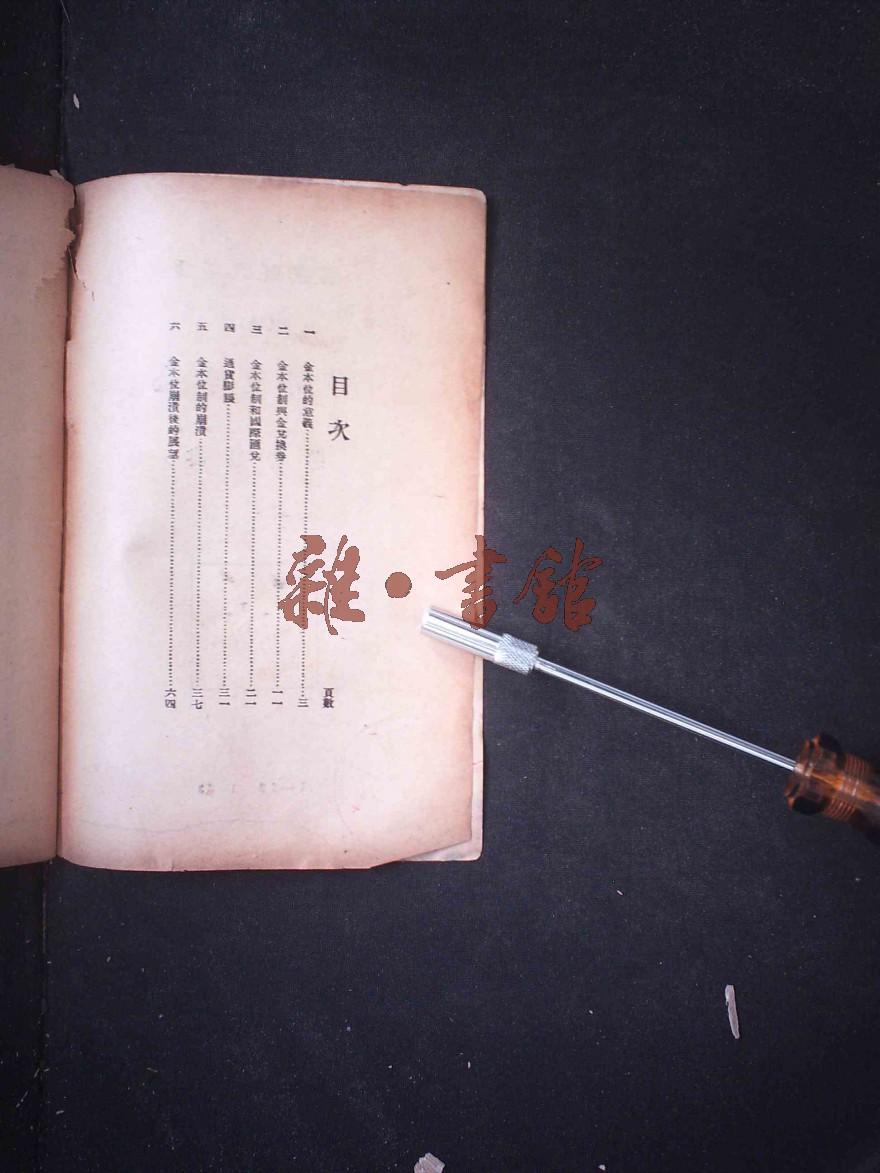 目次
頁數
一 金本位的意義……三
二 金本位制與金兌換券……一一
三 金本位制和國際匯兌……二一
四 通貨膨脹……三一
五 金本位制的崩潰……三七
六 金本位崩潰後的展望……六四
雜·書館